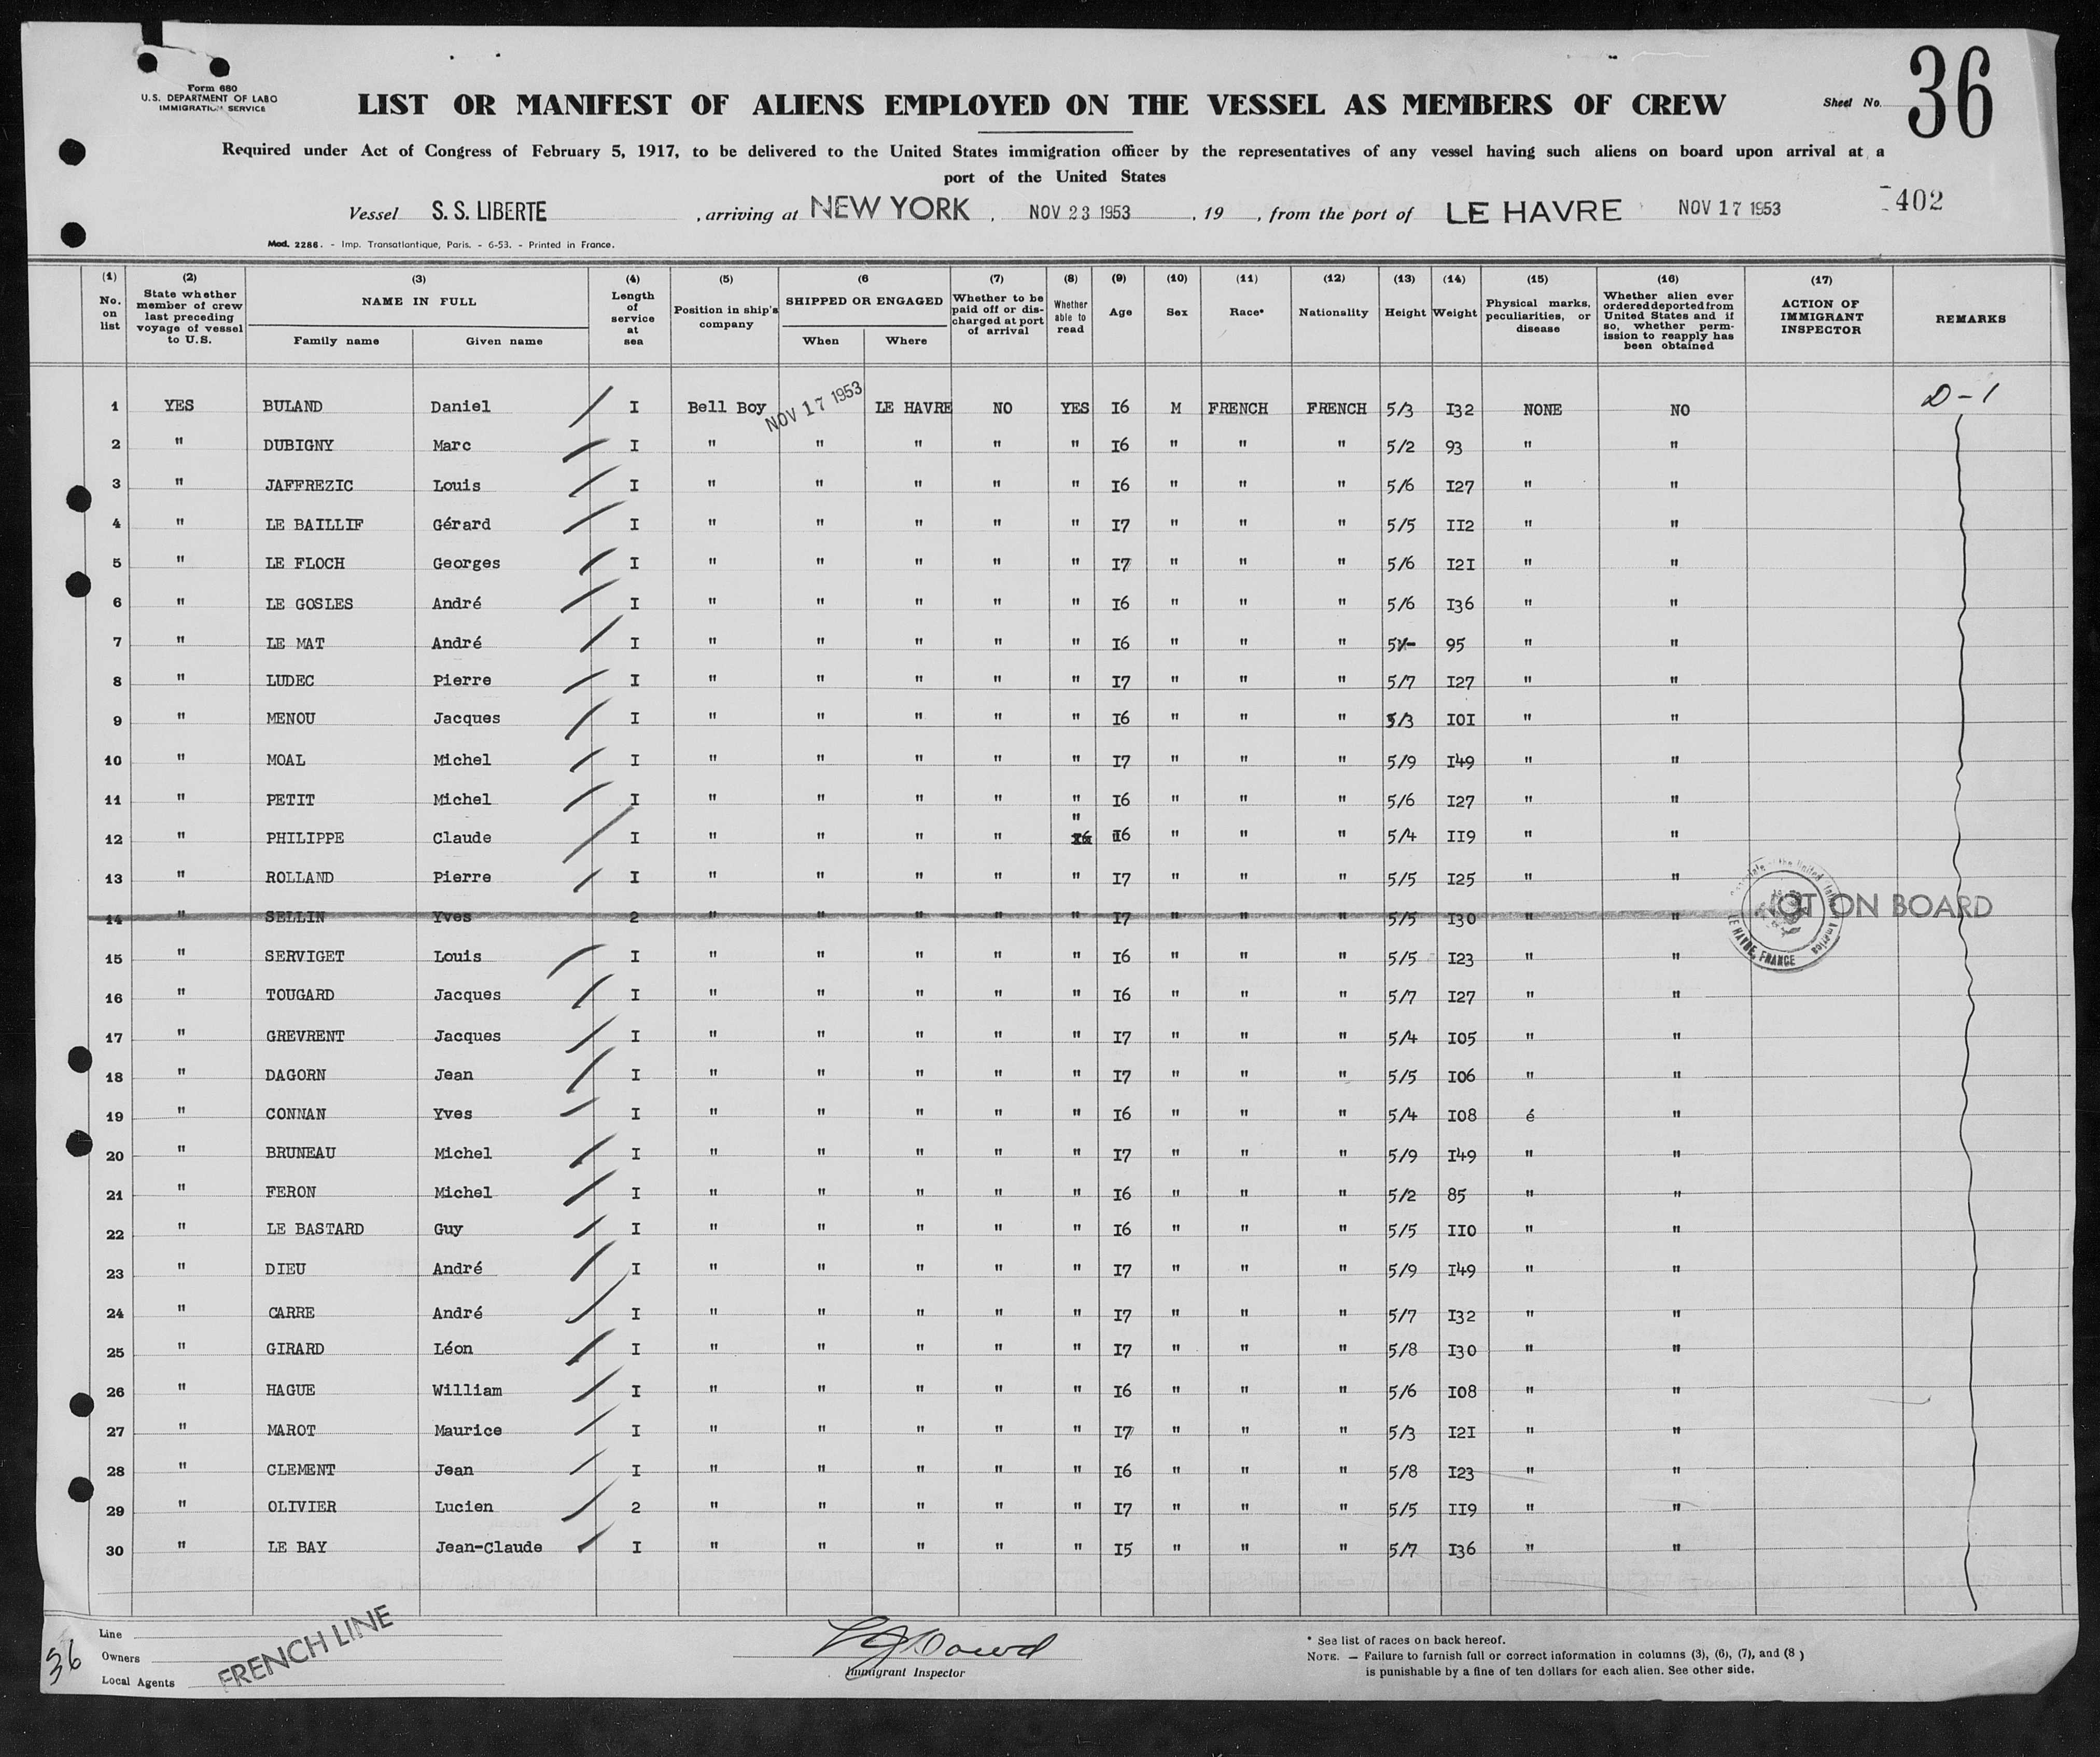 Form 680
U.S. DEPARTMENT OF LABO
IMMIGRATION SERVICE
LIST OR MANIFEST OF ALIENS EMPLOYED ON THE VESSEL AS MEMBERS OF CREW
Sheet No. 36
Required under Act of Congress of February 5, 1917, to be delivered to the United States immigration officer by the representatives of any vessel having such aliens on board upon arrival at a
port of the United States
Vessel S. S. LIBERTE , arriving at NEW YORK , NOV 23 1953 , 19 , from the port of LE HAVRE NOV 17 1953 402
Mod. 2286. - Imp. Transatlantique, Paris. - 6-53. - Printed in France.
(1) No. on list (2) State whether member of crew last preceding voyage of vessel to U.S. (3) NAME IN FULL Family name Given name (4) Length of service at sea (5) Position in ship's company (6 SHIPPED OR ENGAGED When Where (7) Whether to be paid off or discharged at port of arrival (8) Whether able to read (9) Age (10) Sex (11) Race* (12) Nationality (13) Height (14) Weight (15) Physical marks, peculiarities, or disease (16) Whether alien ever ordered deported from United States and if so, whether permission to reapply has been obtained (17) ACTION OF IMMIGRANT INSPECTOR REMARKS
1 YES BULAND Daniel I Bell Boy NOV 17 1953 LE HAVRE NO YES I6 M FRENCH FRENCH 5/3 I32 NONE NO D-1
2 " DUBIGNY Marc I " " " " " I6 " " " 5/2 93 " "
3 " JAFFREZIC Louis I " " " " " I6 " " " 5/6 I27 " "
4 " LE BAILLIF Gérard I " " " " " I7 " " " 5/5 II2 " "
5 " LE FLOCH Georges I " " " " " I7 " " " 5/6 I2I " "
6 " LE GOSLES André I " " " " " I6 " " " 5/6 I36 " "
7 " LE MAT André I " " " " " I6 " " " 5/- 95 " "
8 " LUDEC Pierre I " " " " " I7 " " " 5/7 I27 " "
9 " MENOU Jacques I " " " " " I6 " " " 5/3 IOI " "
10 " MOAL Michel I " " " " " I7 " " " 5/9 I49 " "
11 " PETIT Michel I " " " " " I6 " " " 5/6 I27 " "
12 " PHILIPPE Claude I " " " " " I6 " " " 5/4 II9 " "
13 " ROLLAND Pierre I " " " " " I7 " " " 5/5 I25 " "
14 " SELLIN Yves 2 " " " " " I7 " " " 5/5 I30 " " NOT ON BOARD
LE HAVRE, FRANCE
15 " SERVIGET Louis I " " " " " I6 " " " 5/5 I23 " "
16 " TOUGARD Jacques I " " " " " I6 " " " 5/7 I27 " "
17 " GREVRENT Jacques I " " " " " I7 " " " 5/4 I05 " "
18 " DAGORN Jean I " " " " " I7 " " " 5/5 I06 " "
19 " CONNAN Yves I " " " " " I6 " " " 5/4 I08 é "
20 " BRUNEAU Michel I " " " " " I7 " " " 5/9 I49 " "
21 " FERON Michel I " " " " " I6 " " " 5/2 85 " "
22 " LE BASTARD Guy I " " " " " I6 " " " 5/5 II0 " "
23 " DIEU André I " " " " " I7 " " " 5/9 I49 " "
24 " CARRE André I " " " " " I7 " " " 5/7 I32 " "
25 " GIRARD Léon I " " " " " I7 " " " 5/8 I30 " "
26 " HAGUE William I " " " " " I6 " " " 5/6 I08 " "
27 " MAROT Maurice I " " " " " I7 " " " 5/3 I2I " "
28 " CLEMENT Jean I " " " " " I6 " " " 5/8 I23 " "
29 " OLIVIER Lucien 2 " " " " " I7 " " " 5/5 II9 " "
30 " LE BAY Jean-Claude I " " " " " I5 " " " 5/7 I36 " "
36
Line
Owners
Local Agents
FRENCH LINE
Immigrant Inspector
* See list of races on back hereof.
NOTE. — Failure to furnish full or correct information in columns (3), (6), (7), and (8 )
is punishable by a fine of ten dollars for each alien. See other side.